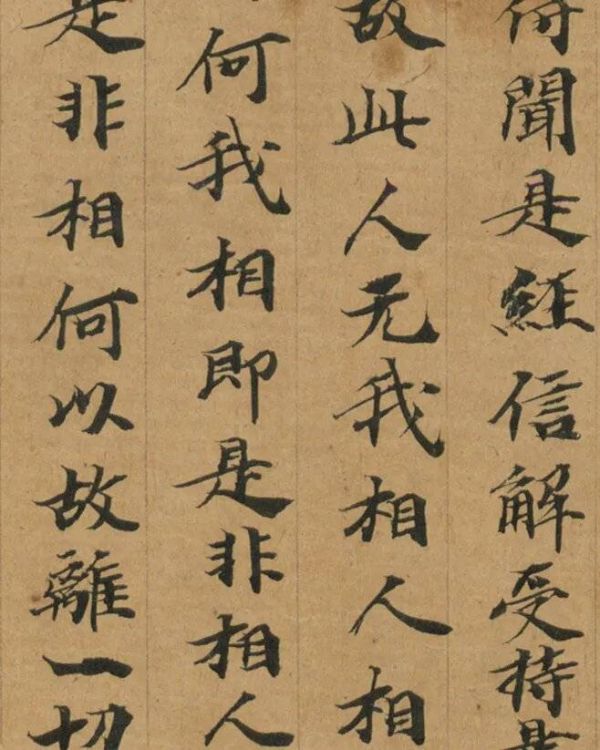 得聞是經信解受持是
故此人无我相人相
何我相即是非相人
是非相何以故離一切